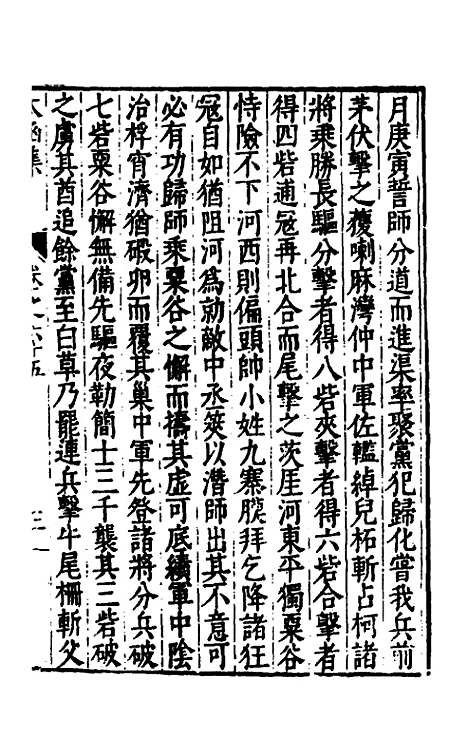 月庚寅誓師分道而進渠率聚黨犯歸化嘗我兵前
茅伏擊之覆喇麻灣仲中軍佐轞綽兒柘斬占柯諸
將乘勝長驅分擊者得八砦夾擊者得六砦合擊者
得四砦逋冦再北合而尾擊之茨厓河東平獨粟谷
恃險不下河西則偏頭帥小姓九寨朡拜乞降諸狂
冦自如猶阻河為勍敵中丞筴以潛師出其不意可
必有功歸師乘粟谷之懈而擣其虛可底績軍中陰
治桴宵濟猶碬卵而覆其巢中軍先咎諸將分兵破
七砦粟谷懈無備先驅夜勒簡士三千襲其三砦破
之虜其酋追餘黨至白草乃罷連兵擊牛尾柵斬父
太函集
卷之六十五
三